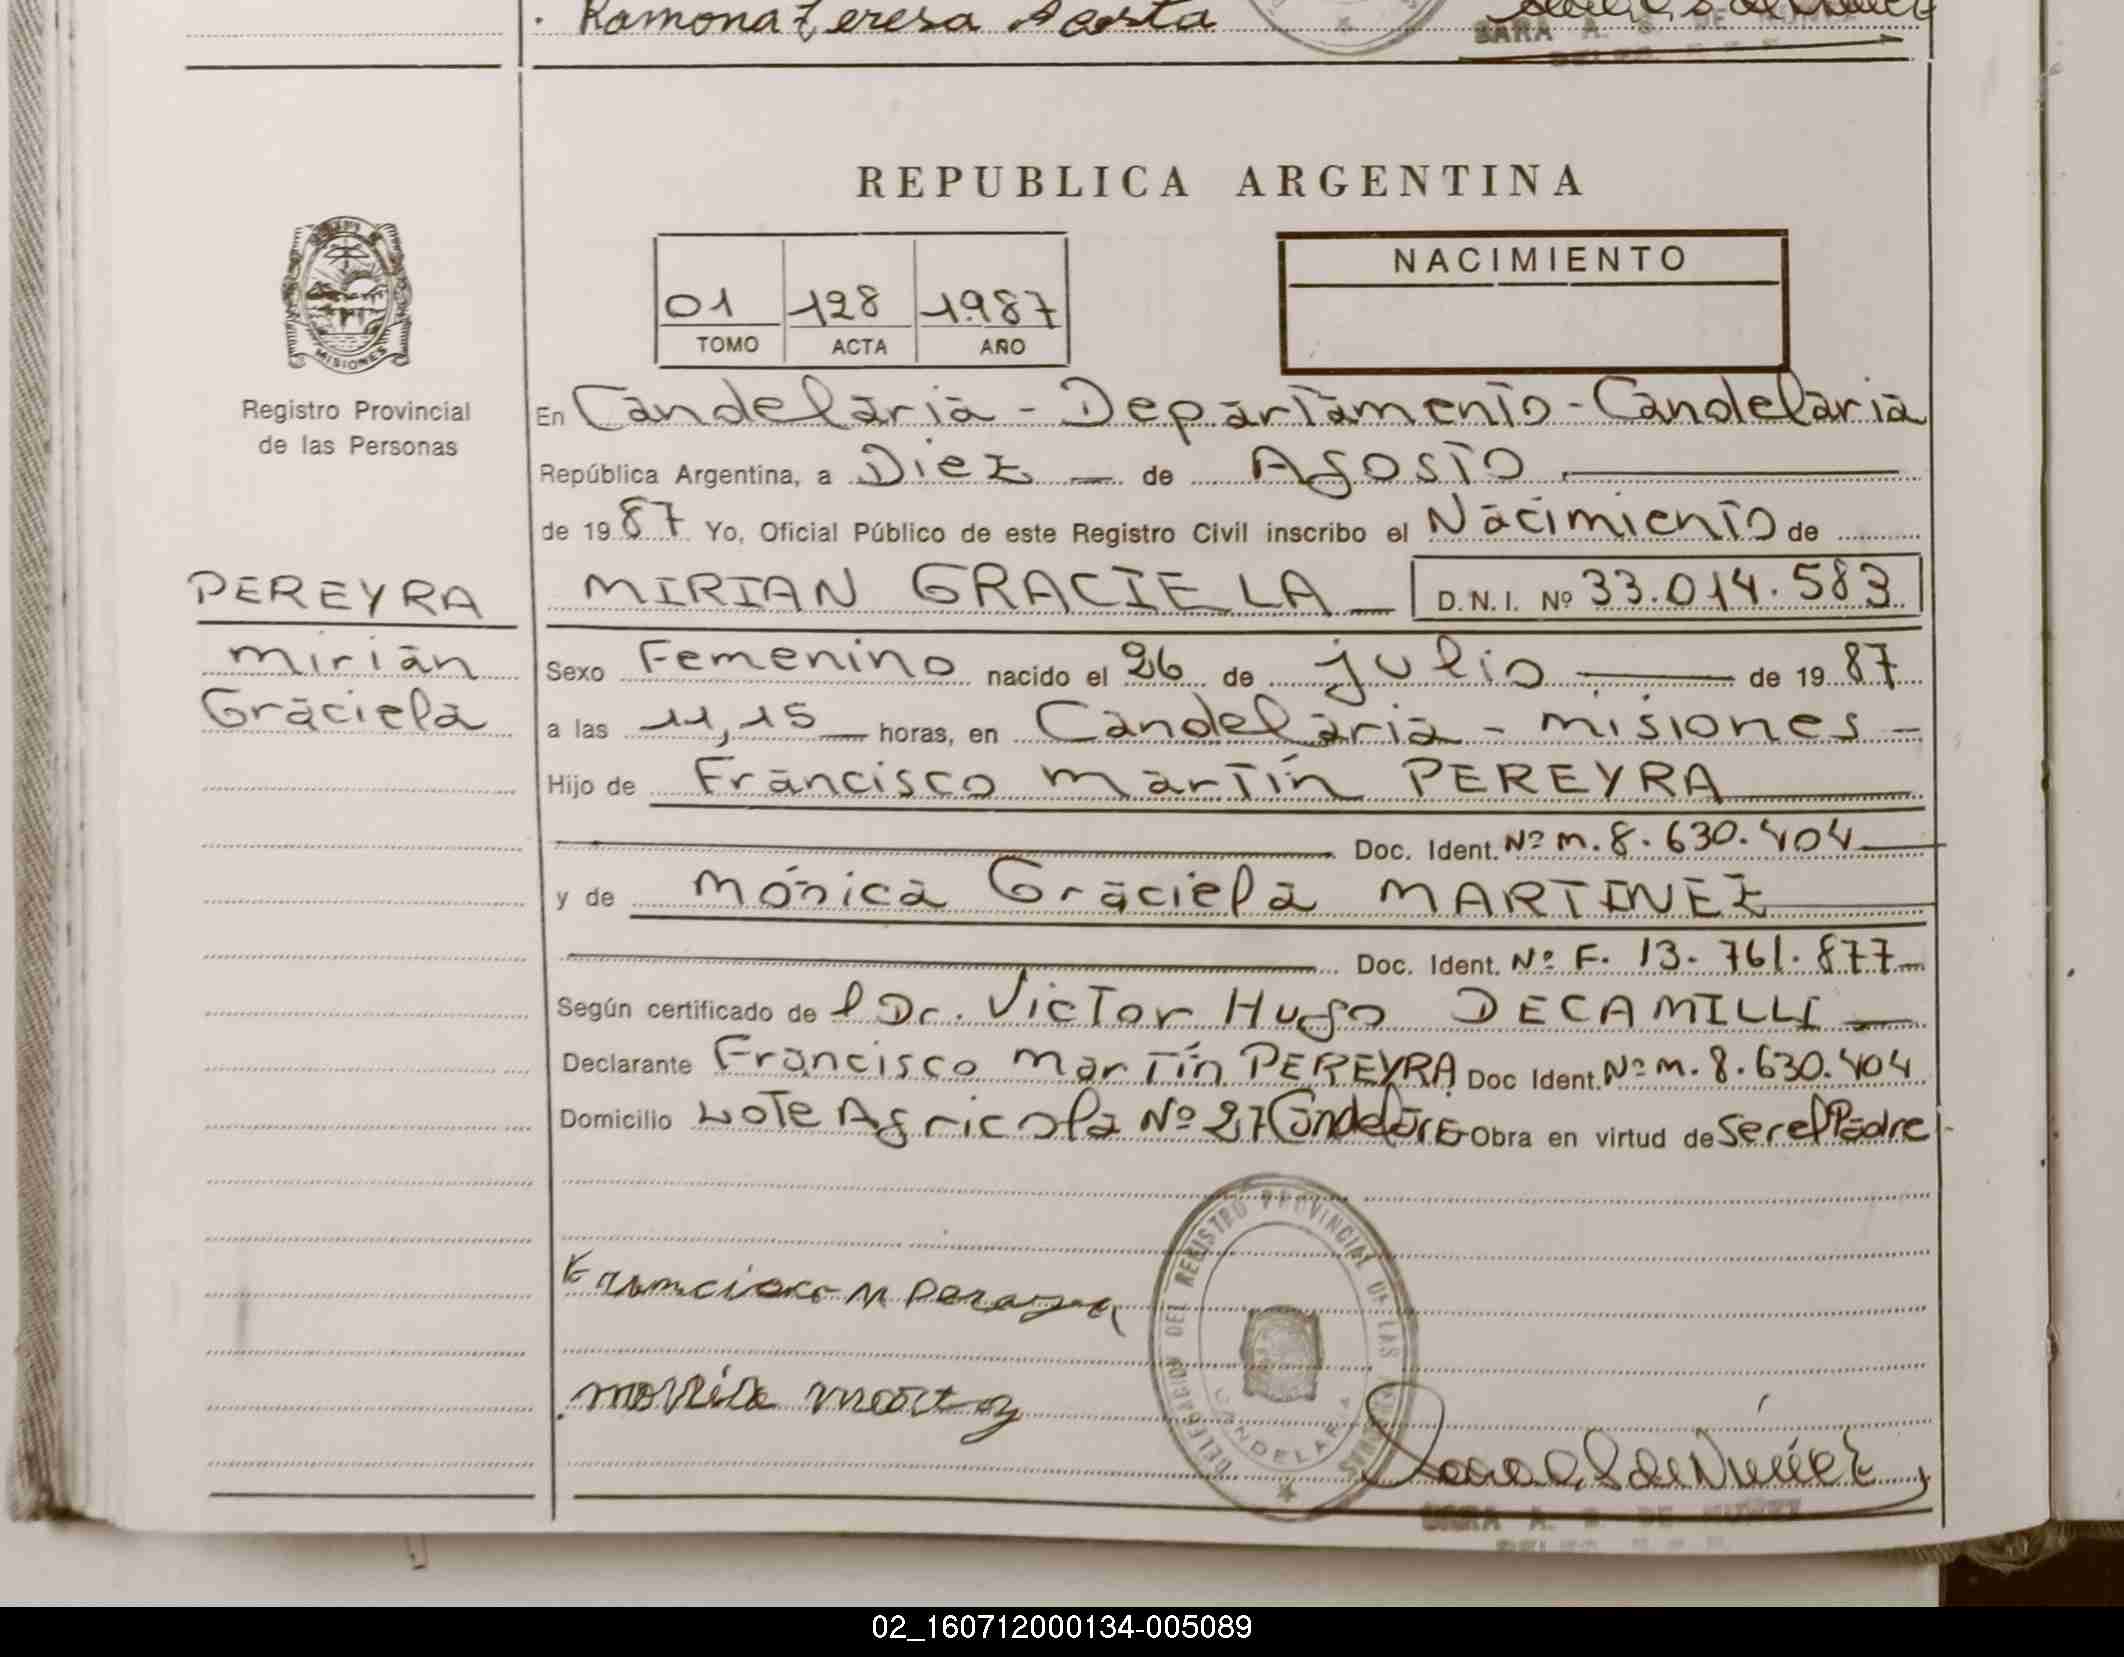 Ramona Teresa Acosta
SARA A. S. DE NUÑEZ
REPUBLICA ARGENTINA
NACIMIENTO
01 128 1987
TOMO ACTA AÑO
MISIONES
Registro Provincial
de las Personas
En Candelaria - Departamento - Candelaria
República Argentina, a Diez de Agosto
de 1987 Yo, Oficial Público de este Registro Civil inscribo el Nacimiento de
PEREYRA
Mirian
Graciela
MIRIAN GRACIELA D.N.I. Nº 33.014.583
Sexo Femenino nacido el 26 de julio de 1987
a las 11,15 horas, en Candelaria - Misiones -
Hijo de Francisco Martín PEREYRA
Doc. Ident. Nº M. 8.630.404
y de Mónica Graciela MARTINEZ
Doc. Ident. Nº F. 13.761.877
Según certificado del Dr. Victor Hugo DECAMILLI
Declarante Francisco Martín PEREYRA Doc Ident. Nº M. 8.630.404
Domicilio Lote Agricola Nº 27 Candelaria Obra en virtud de ser el Padre
DELEGACION DEL REGISTRO PROVINCIAL DE LAS PERSONAS
CANDELARIA
Francisco M Pereyra
Sara A. S. de Nuñez
SARA A. S. DE NUÑEZ
02_160712000134-005089